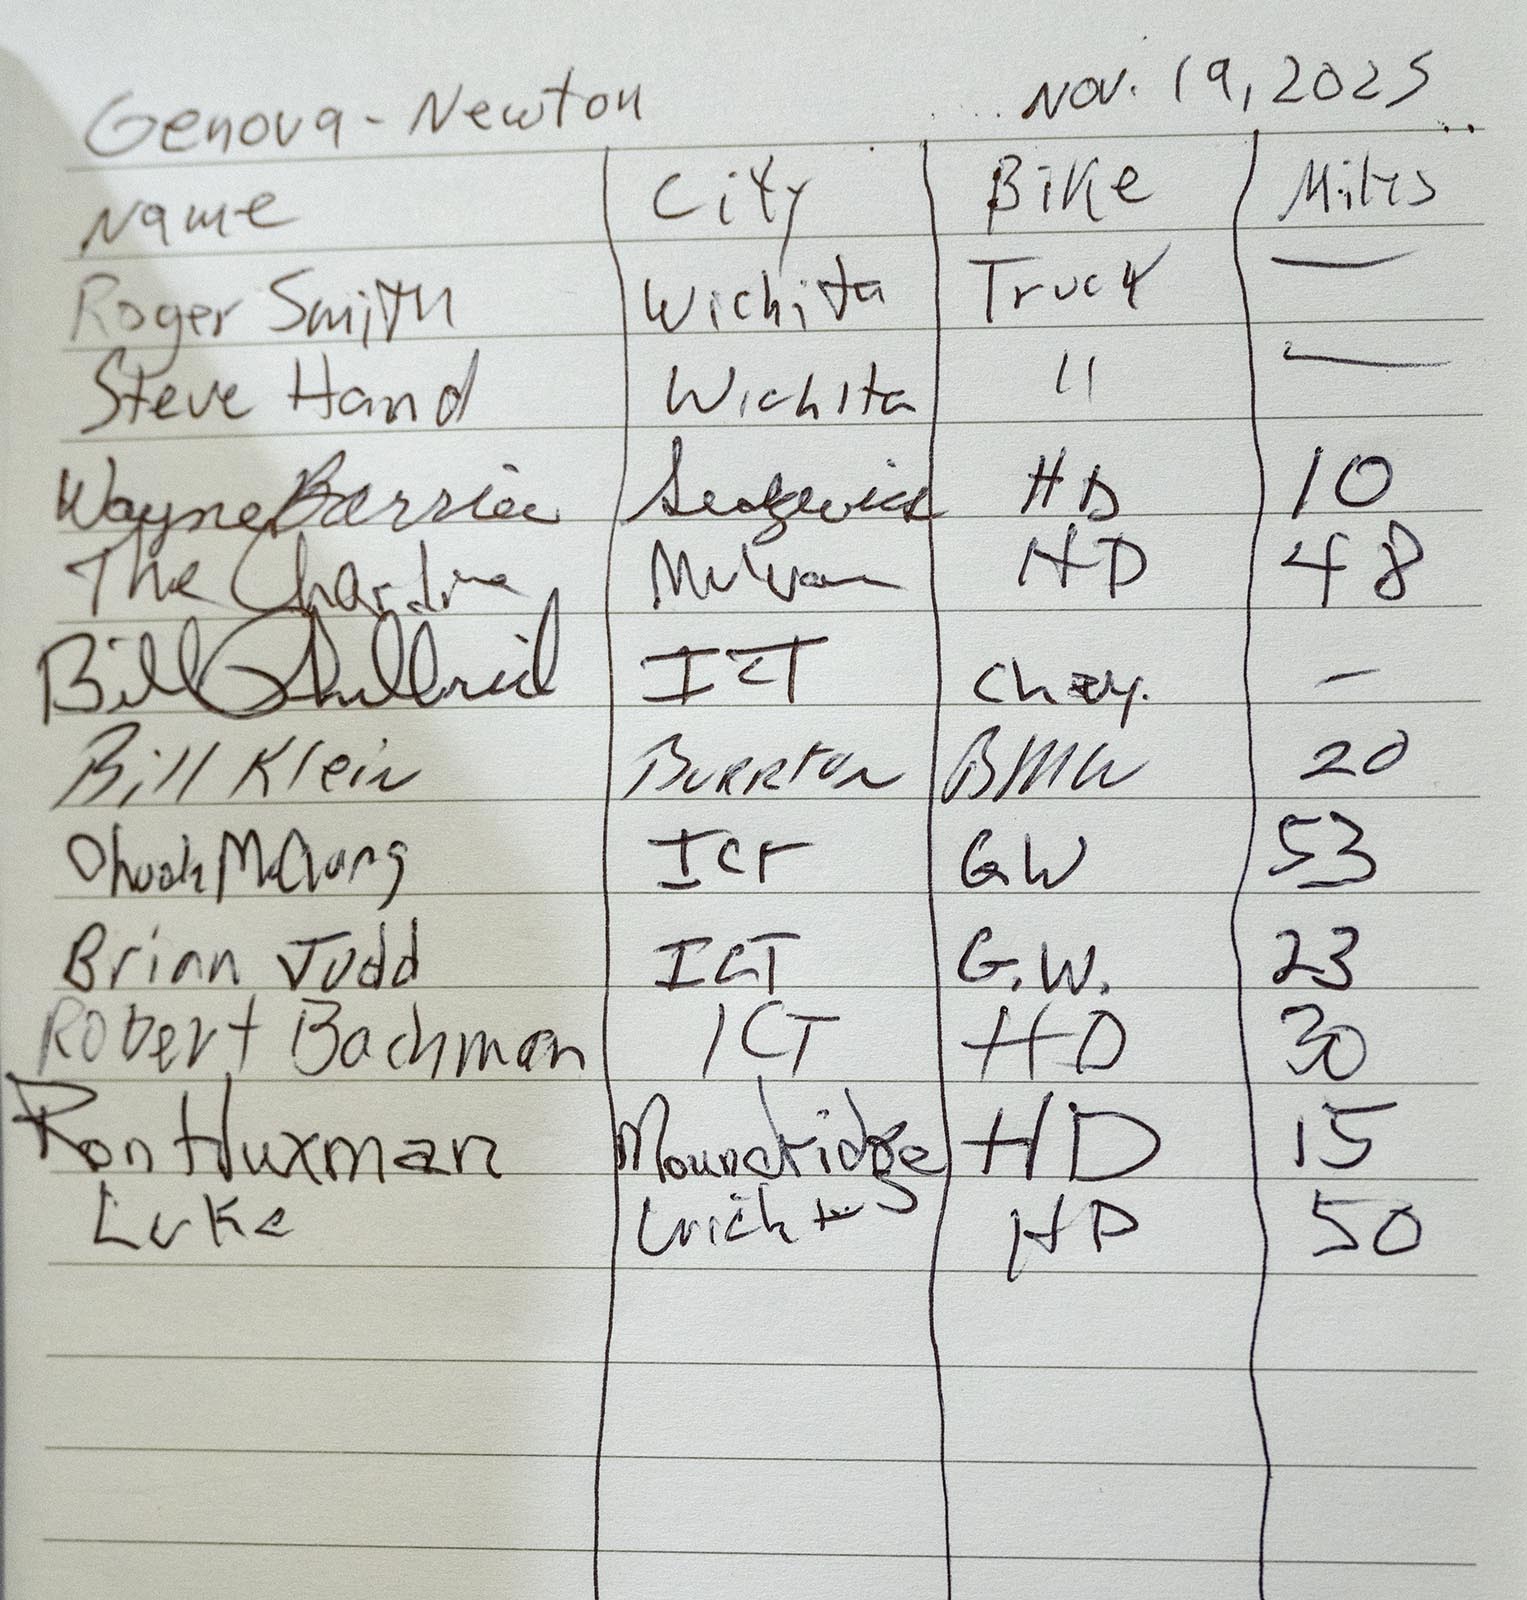 Genova - Newton Nov. 19, 2025
Name City Bike Miles
Roger Smith Wichita Truck —
Steve Hand Wichita " —
Wayne Barrier Sedgwick HD 10
The Mulvane HD 48
Bill ICT Chev. –
Bill Klein Burrton BMW 20
Chuck McClung ICT GW 53
Brian Judd ICT G.W. 23
Robert Bachman ICT HD 30
Ron Huxman Moundridge HD 15
Luke Wichita HD 50